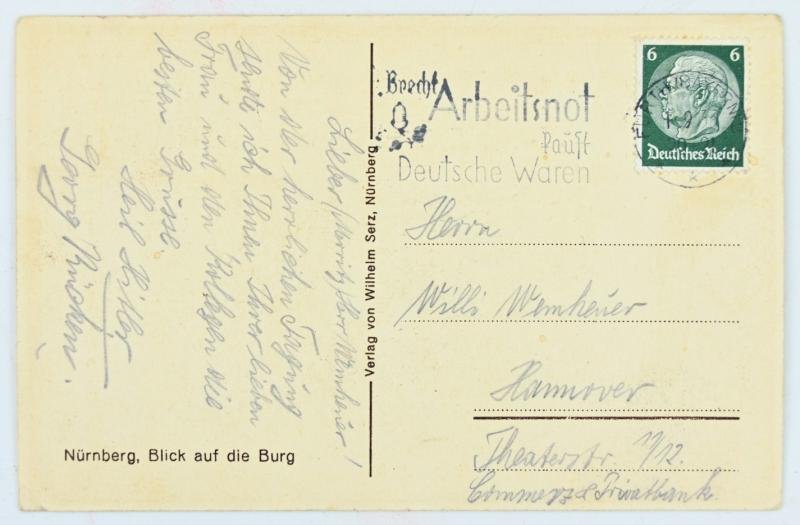 Lieber Herr Wemheuer!
Von der herrlichen Tagung
sende ich Ihnen Ihrer lieben
Frau und den Kollegen die
besten Grüsse
Heil Hitler
Georg
Nürnberg, Blick auf die Burg
Verlag von Wilhelm Serz, Nürnberg
Brecht
Arbeitsnot
kauft
Deutsche Waren
6 6
Deutsches Reich
Herrn
Willi Wemheuer
Hannover
Theaterstr.
Commerz & Privatbank.